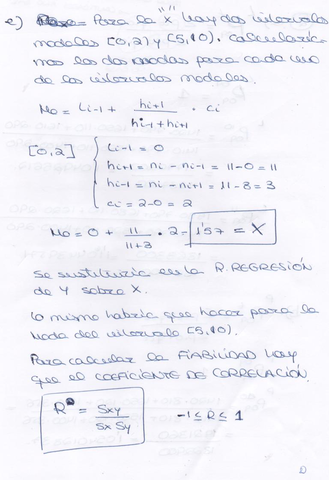 e) Para la "x" hay dos intervalos
modales [0,2) y [5,10). Calcularía-
mos las dos modas para cada uno
de los intervalos modales.
Mo = Li-1 + hi+1 / hi-1 + hi+1 · ci
[0,2] { Li-1 = 0
hi+1 = ni - ni-1 = 11-0 = 11
hi-1 = ni - ni+1 = 11-8 = 3
ci = 2-0 = 2
Mo = 0 + 11 / 11+3 · 2 = 1'57 = X
Se sustituiría en la R. REGRESIÓN
de Y sobre X.
Lo mismo habría que hacer para la
moda del intervalo [5,10).
Para calcular la FIABILIDAD hay
que el COEFICIENTE DE CORRELACIÓN.
R = Sxy / Sx Sy -1 ≤ R ≤ 1